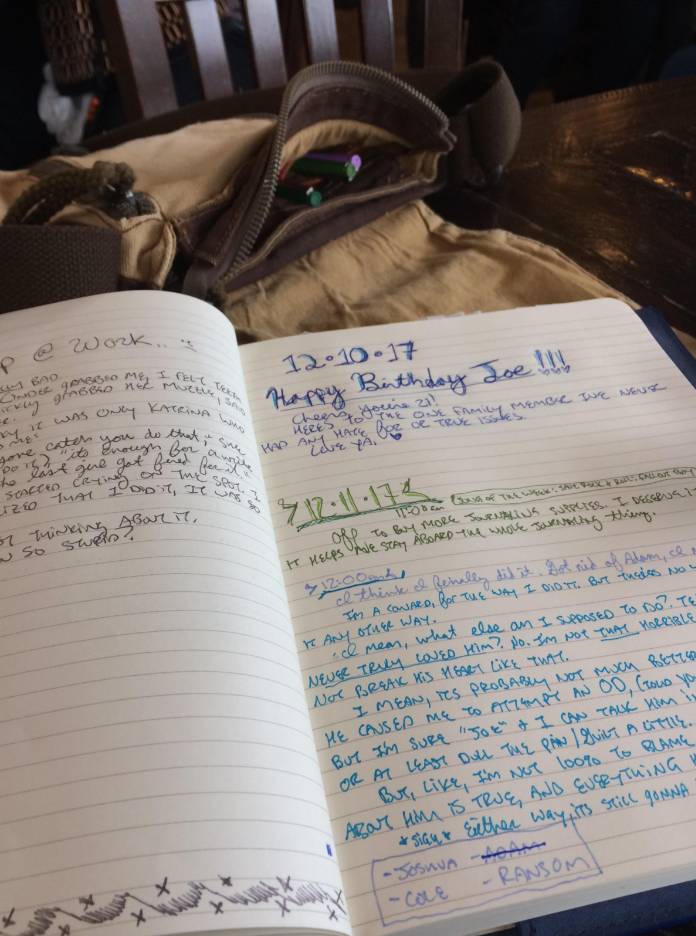 P @ WORK..
BAD.
GRABBED ME, I FELT TEETH
GRABBED HER MUZZLE, SAID
IT WAS ONLY KATRINA WHO
catch you do that," she
"it's enough for a write
last girl got fired for it."
STARTED CRYING ON THE SPOT. I
THAT I DID IT, IT WAS SO
THINKING ABOUT IT.
SO STUPID?
12•10•17
Happy Birthday Joe !!!
Cheers, you're 21!
HERES TO THE ONE FAMILY MEMBER IVE NEVER
HAD ANY HATE FOR OR TRUE ISSUES.
LOVE YA.
12.11.17
11:00am
SONG OF THE WEEK: SAVE ROCK & ROLL: FALL OUT BOY
Off TO BUY MORE JOURNALING SUPPLIES. I DESERVE IT
IT HELPS ME STAY ABOARD THE WHOLE JOURNALING thing.
12:00am
I think I finally did it. Got rid of Adam, I
I'M A COWARD, FOR THE WAY I DID IT. BUT THERES NO
IT ANY OTHER WAY.
I mean, what else am I SUPPOSED TO DO?
NEVER TRULY LOVED HIM? NO. I'M NOT THAT HORRIBLE
NOT BREAK HIS HEART LIKE THAT.
I MEAN, ITS PROBABLY NOT MUCH BETTER
HE CAUSED ME TO ATTEMPT AN OD,
BUT I'M SURE "JOE" & I CAN TALK HIM
OR AT LEAST DULL THE PAIN/GUILT A LITTLE.
BUT, LIKE, I'M NOT 100% TO BLAME
ABOUT HIM IS TRUE, AND EVERYTHING
*sigh* Either way, its still gonna
-JOSHUA -ADAM
-COLE -RANSOM